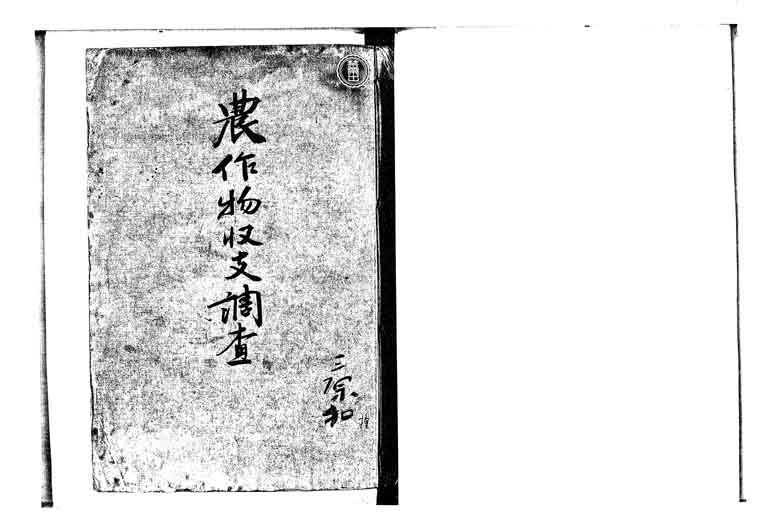 農作物收支調査
三宗和